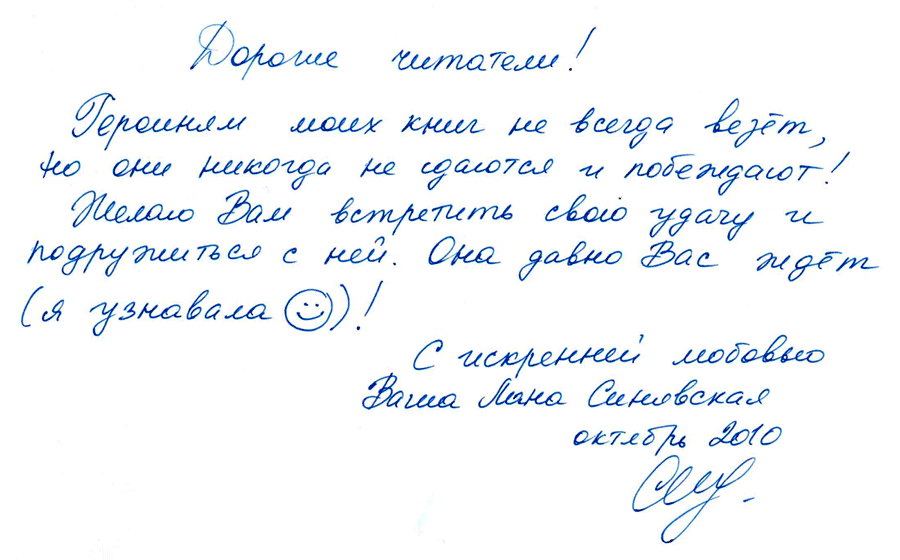 Дорогие читатели!
Героиням моих книг не всегда везёт,
но они никогда не сдаются и побеждают!
Желаю Вам встретить свою удачу и
подружиться с ней. Она давно Вас ждёт
(я узнавала ☺)!
С искренней любовью
Ваша Лана Синявская
октябрь 2010